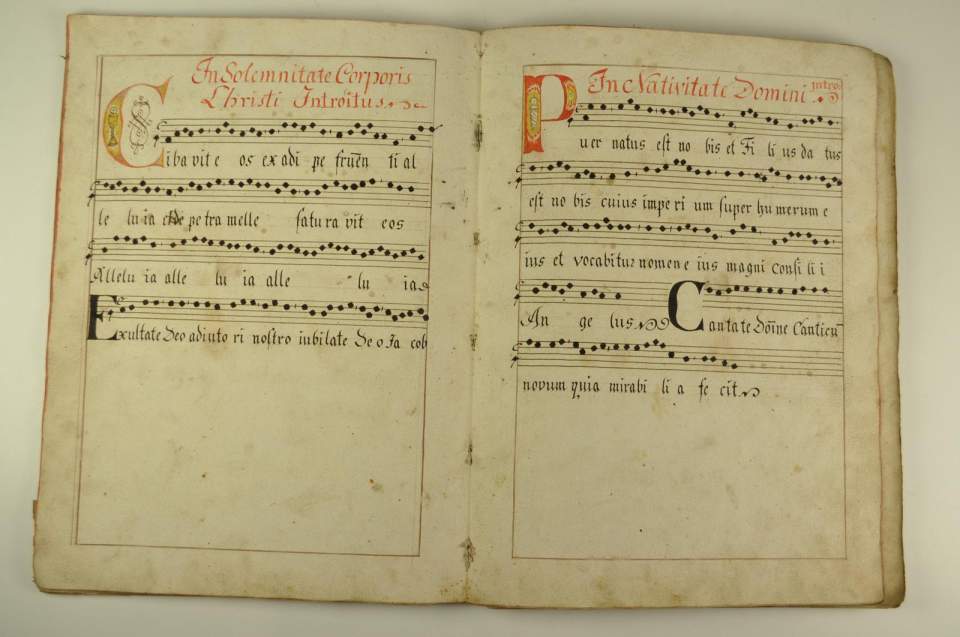 In Solemnitate Corporis
Christi Introitus
Cibavit e os ex adi pe frumen ti al
le lu ia et de pe tra melle satura vit eos
Allelu ia alle lu ia alle lu ia
Exultate Deo adiuto ri nostro iubilate De o Ia cob
In Nativitate Domini Introi
Puer natus est no bis et Fi li us da tus
est no bis cuius impe ri um super hu merum e
ius et vocabitur nomen e ius magni consi li i
An ge lus Cantate Dōīne Canticū
novum quia mirabi li a fe cit